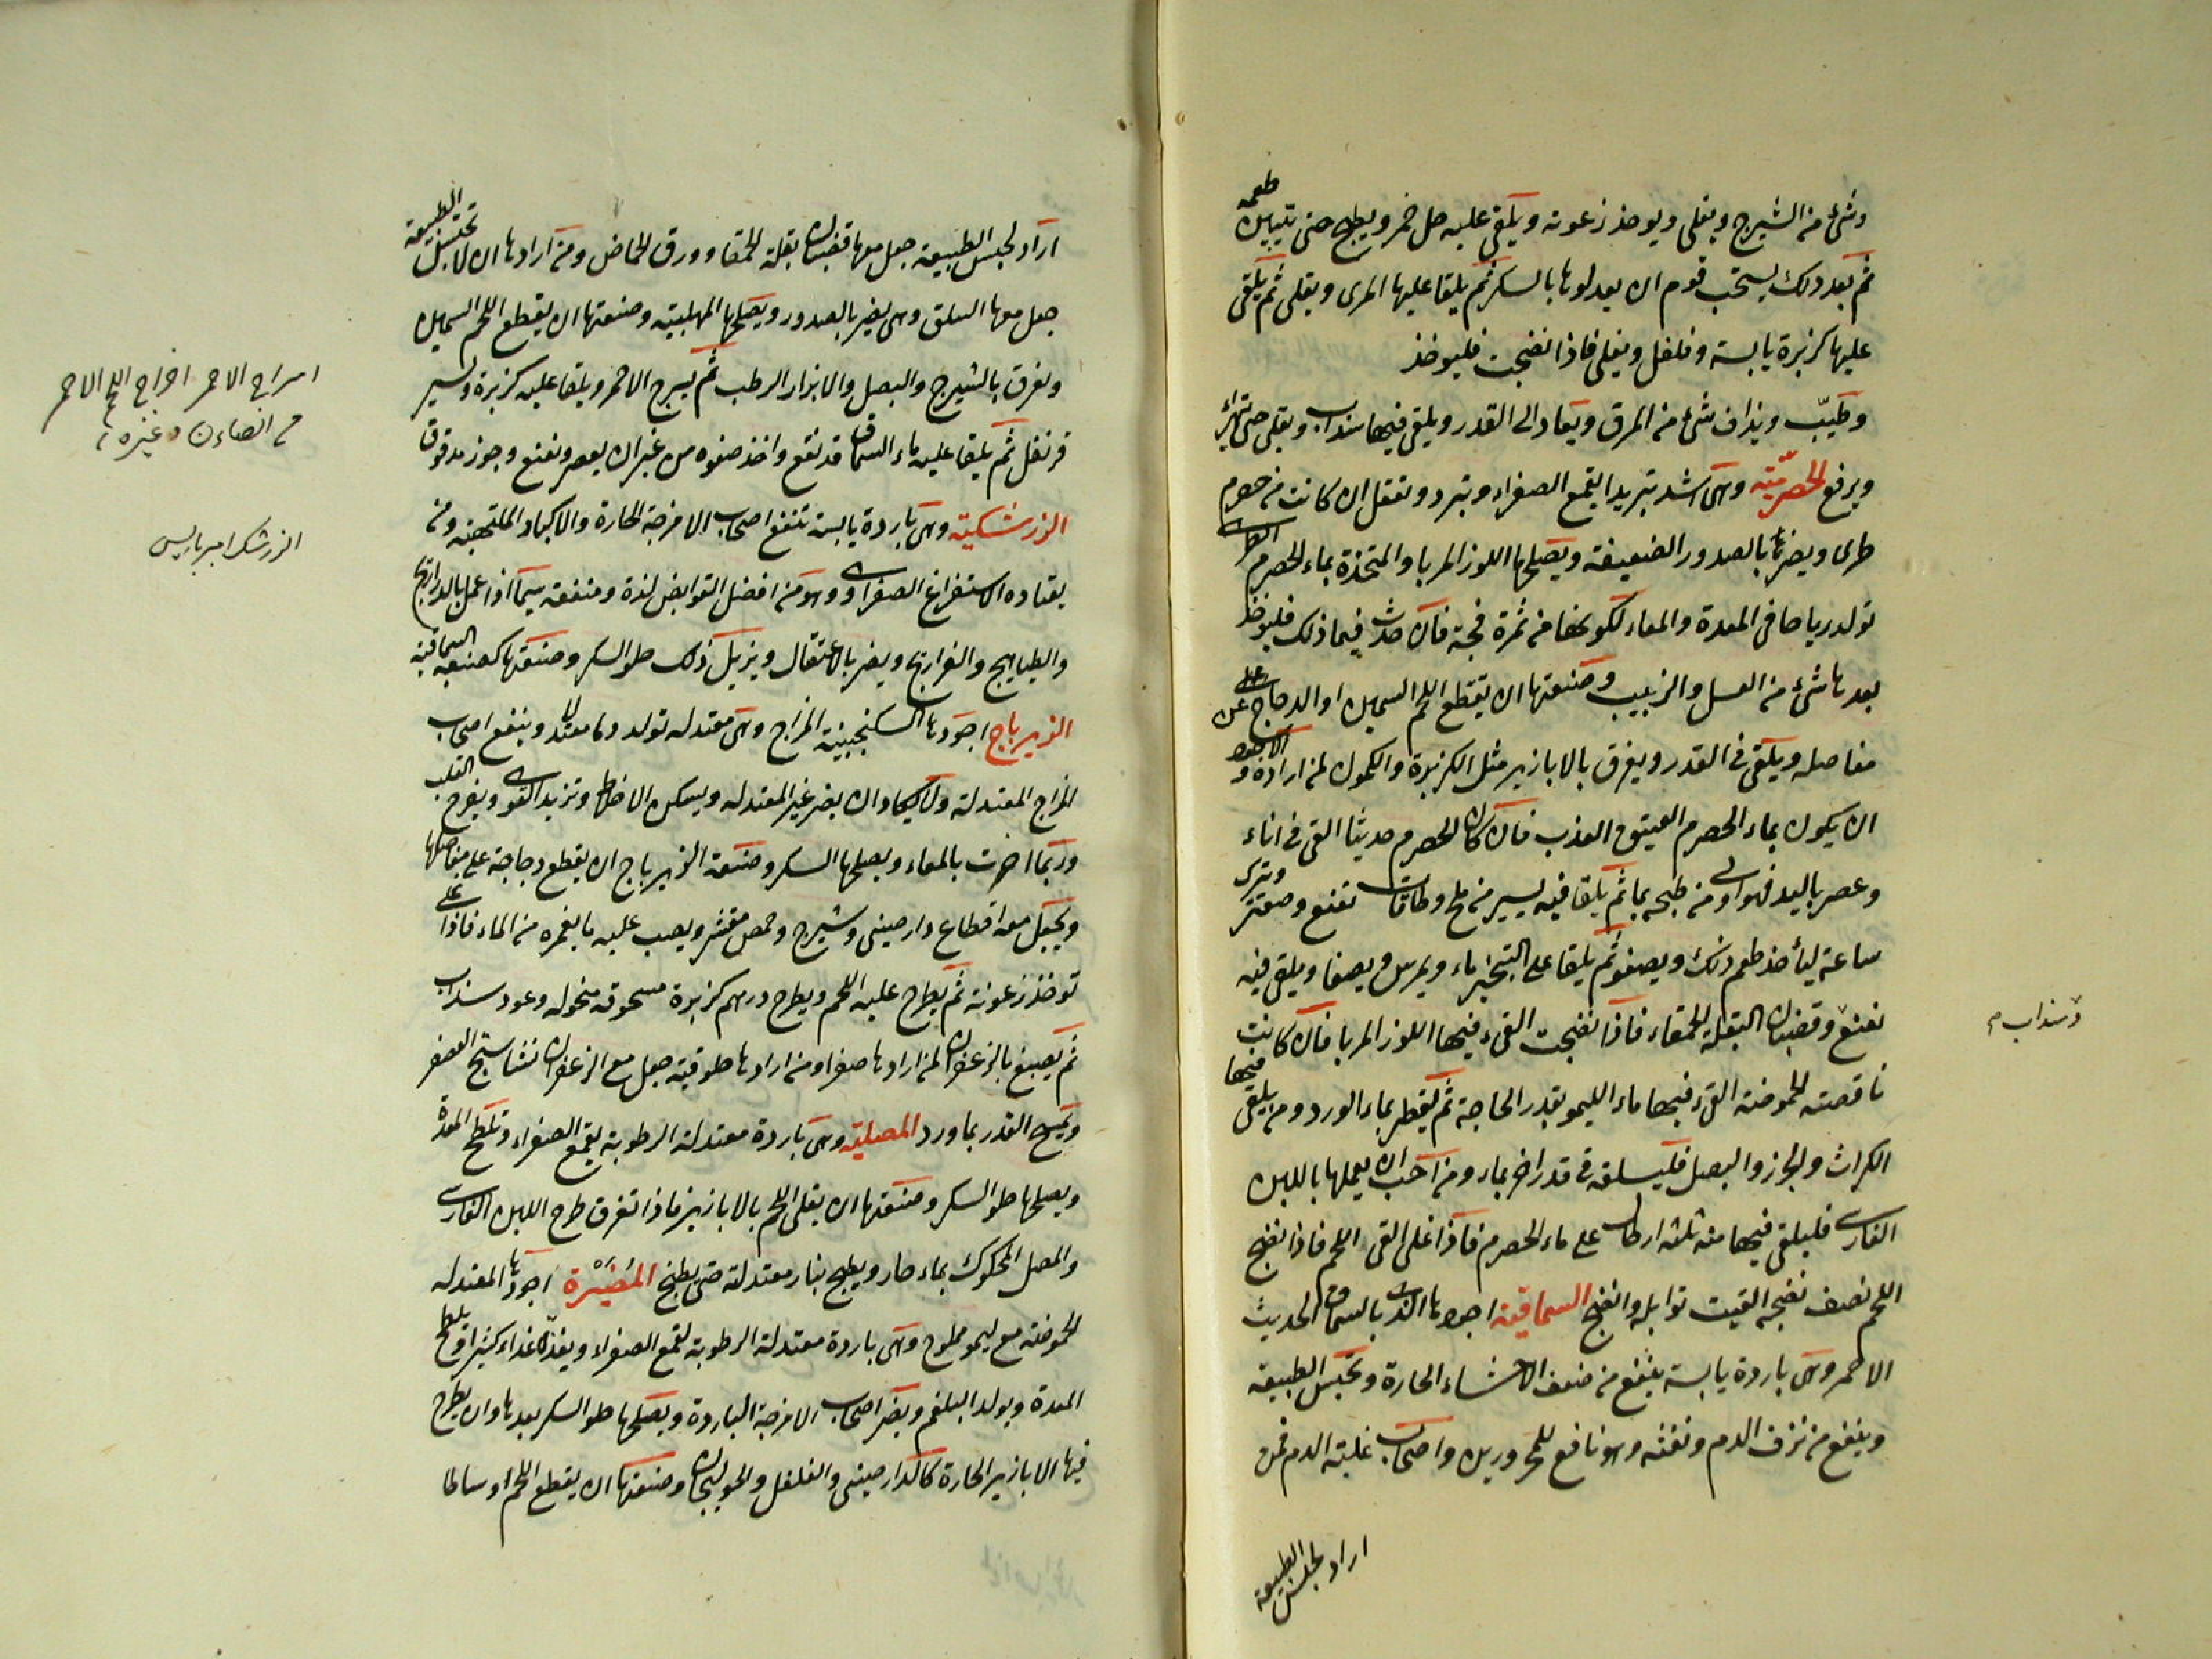 وشئ من الشيرج ويغلى ويوخذ زعوته ويلقى عليه خل خمر ويطبخ حتى يتبين طعمه
ثم بعد ذلك يستحب قوم ان يعدلوها بالسكر ثم يلقا عليها المرى ويغلى ثم يلقى
عليها كزبرة يابسة وفلفل ويغلى فاذا نضجت فليوخذ
وطيّب ويذاف شئ من المرق ويعاد الى القدر ويلقى فيها سنداب ويغلى حتى تتهرئ
ويرفع الحصرميّته وهى اشد تبريدا لقمع الصفراء وتبرد وتعقل ان كانت من حصرم
طرى ويضر بالصدور الضعيفة ويصلحها اللوز المربا والمتخذة بماء الحصرم الطرى
تولد رياحا فى المعدة والمعاء لكونها من ثمرة فجة فان حدث فيما ذلك فليوخذ
بعدها شئ من العسل والزبيب وصنعتها ان يقطع اللحم السمين او الدجاج على
مفاصله ويلقى فى القدر ويغرق بالابازير مثل الكزبرة والكمون لمن اراده والاجود
ان يكون بماء الحصرم العتيق العذب فان كان الحصرم حديثا القى فى اناء
وعصر باليد فهو اولى من طبخه بماء ثم يلقا فيه يسير من ملح وطاقات نعنع وصعتر ويترك
ساعة ليأخذ طعم ذلك ويصفو ثم يلقا على التبخير ماء ويمرس ويصفا ويلقى فيه
نعنع وقضبان البقلة الحمقاء فاذا نضجت القى فيها اللوز المربا فان كانت
ناقصة الحموضه القى فيها ماء الليمو بقدر الحاجة ثم يقطر بماء الورد ومن يلقى فيها
الكراث والجزر والبصل فليسلقه فى قدر اخر بماء ومن احب ان يعملها باللبن
الفارسى فليلقى فيها منه ثلثه ارطال على ماء الحصرم فاذا غلى القى اللحم فاذا نضج
اللحم نصف نضجه القيت توابله وانضج السماقيّة اجودها الذى بالسماق الحديث
الاحمر وهى باردة يابسة ينفع من ضعف الاحشاء الحارة وتحبس الطبيعة
وينفع من نزف الدم ونفثه وهو نافع للمحرورين واصحاب غلبة الدم فمن
اراد لحبس الطبيعة
وسنداب م
اراد لحبس الطبيعة جعل معها قضبان بقلة الحمقا وورق الحماض ومن ارادها ان لا تحبس الطبيعة
جعل معها السلق وهى يضر بالصدور ويصلحها المهلبيته وصنعتها ان يقطع اللحم السمين
ويغرق بالشيرج والبصل والابزار الرطب ثم يسرج الاحمر ويلقا عليه كزبرة ويسير
قرنفل ثم يلقا عليه ماء السماق قد نقع واخذ صفوه من غير ان يعصر ونعنع وجوز مدقوق
الزرشكية وهى باردة يابسة تنفع اصحاب الامزجة الحارة والاكباد الملتهبه ومن
يعتاده الاستفراغ الصفراوى وهو من افضل القوابض لذة ومنفعة سيما اذا عمل بالدراريج
والطياهيج والفراريج ويضر بالاعتقال ويزيل ذلك حلو السكر وصنعتها كصنعة السماقية
الزيرباج اجودها السكنجبينية المزاج وهى معتدله تولد دما معتدلا وينفع اصحاب
المزاج المعتدلة ولا يكاد ان يضر غير المعتدله ويسكن الاخلاط وتزيد القوى ويفرح القلب
وربما اضرت بالمعاء ويصلحها السكر وصنعة الزيرباج ان يقطع دجاجة على مفاصلها
ويجعل معه اقطاع دارصينى وشيرج وحمص مقشر ويصب عليه ما يغمره من الماء فاذا غلى
توخذ زعوته ثم يطرح عليه اللحم ويطرح درهم كزبرة مسحوقه منخوله وعود سنداب
ثم يصبغ بالزعفران لمن ارادها صفرا ومن ارادها حلوقية جعل مع الزعفران نشاستج العصفر
ويمسح القدر بماورد المصلية وهى باردة معتدلة الرطوبة يقمع الصفراء وتلطخ المعدة
ويصلحها حلو السكر وصنعتها ان يغلى اللحم بالابازير فاذا تغرق طرح اللبن الفارسى
والمصل المحكوك بماء حار ويطبخ بنار معتدلة حتى يطبخ المُضَيْرة اجودها المعتدله
الحموضته مع ليمو مملوح وهى باردة معتدلة الرطوبة لقمع الصفراء ويغذى غداء كثيرا وتلطخ
المعدة ويولد البلغم ويضر اصحاب الامزجة الباردة ويصلحها حلو السكر بعدها وان يطرح
فيها الابازير الحارة كالدارصينى والفلفل والخولنجان وصنعتها ان يقطع اللحم اوساطا
اسراج الاحمر اخراج اللحم الاحمر
من الضاءن وغيره
الزرشك امبرباريس